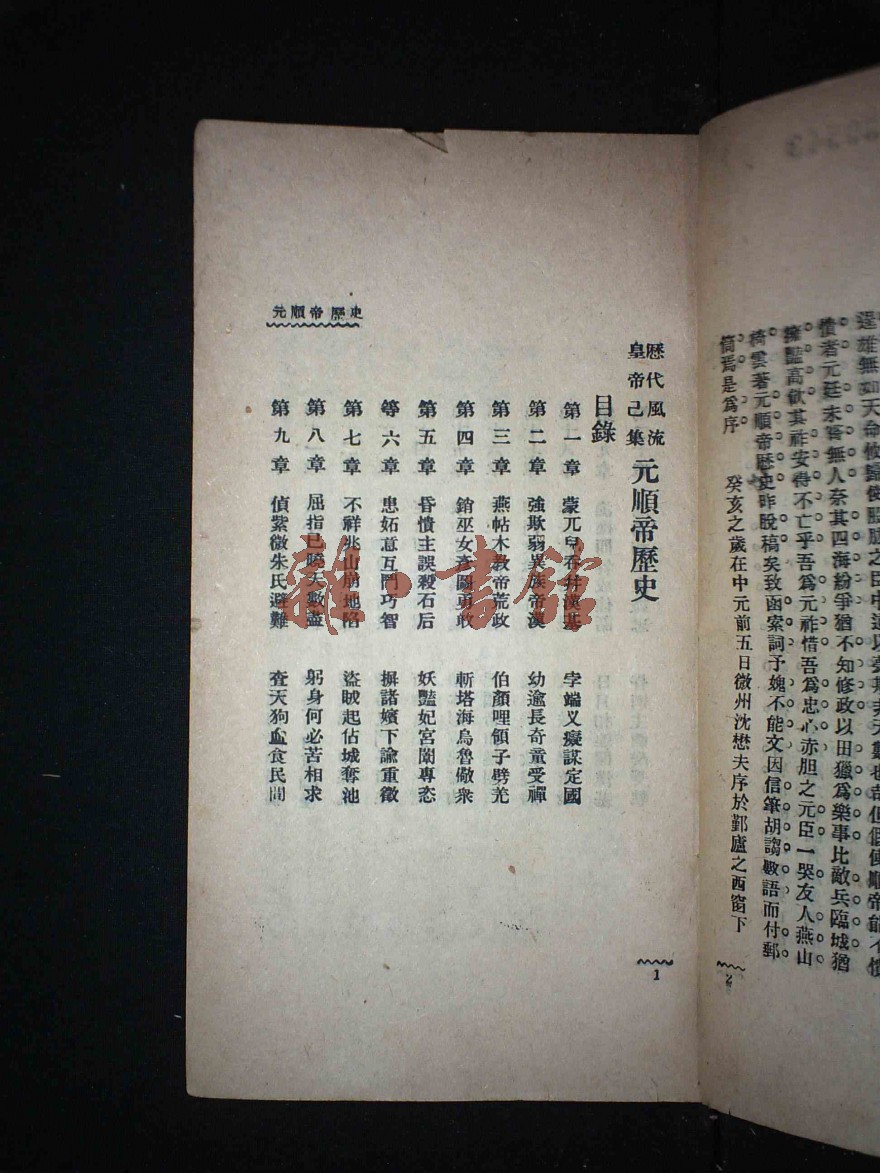 逞雄無如天命攸歸使
憒者元廷未嘗無人奈其四海紛爭猶不知修政以田獵爲樂事比敵兵臨城猶
擁豔高歌其祚安得不亡乎吾爲元祚惜吾爲忠心赤胆之元臣一哭友人燕山
綺雲著元順帝歷史昨脫稿矣致函索詞予媿不能文因信筆胡謅數語而付郵
筒焉是爲序
癸亥之歲在中元前五日徽州沈懋夫序於鄞廬之西窗下
2
歷代風流
皇帝己集
元順帝歷史
目錄
第一章 蒙兀兒吞并漢基 孛端义癡謀定國
第二章 強欺弱異族帝漢 幼逾長奇童受禪
第三章 燕帖木教帝荒政 伯顏哩領子劈羌
第四章 銷巫女彥圖勇收 斬塔海烏魯儆衆
第五章 昏憒主誤殺石后 妖豔妃宮闈專恣
等六章 忠妬意互鬥巧智 摒諸嬪下諭重徵
第七章 不祥兆山崩地陷 盜賊起佔城奪池
第八章 屈指已曉天數盡 躬身何必苦相求
第九章 偵紫微朱氏避難 查天狗血食民間
元順帝歷史
1
雜書館